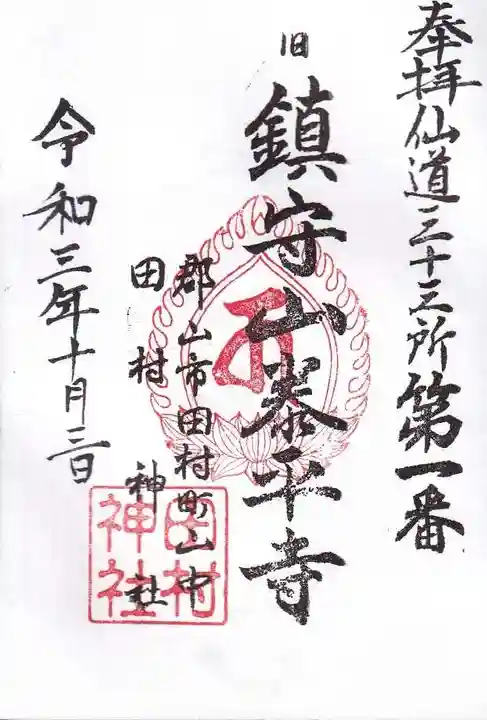 奉拝仙道三十三所第一番
旧
鎮守山泰平寺
郡山市田村町山中
田村神社
田村神社
令和三年十月三日